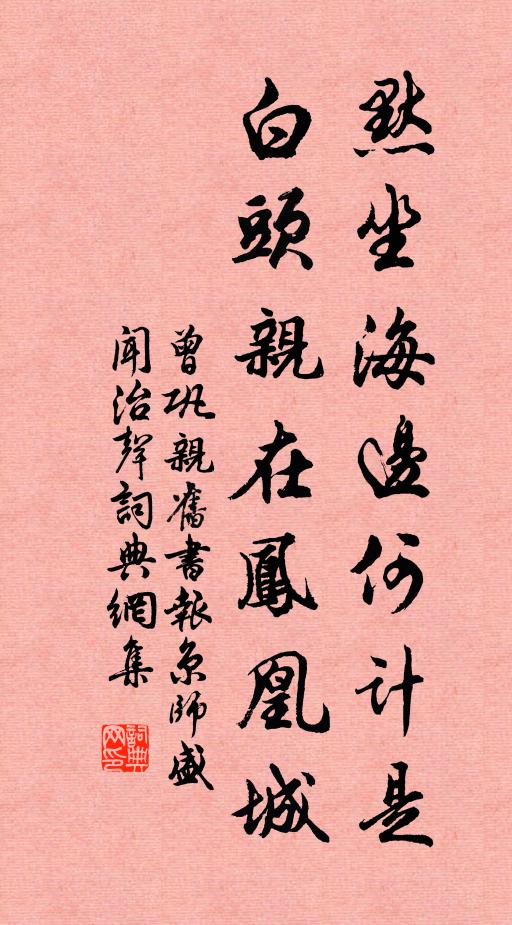 默坐海邊何計是
白頭親在鳳凰城
曾巩親舊書報京師盛
聞治聲詞典網集
詞典网印